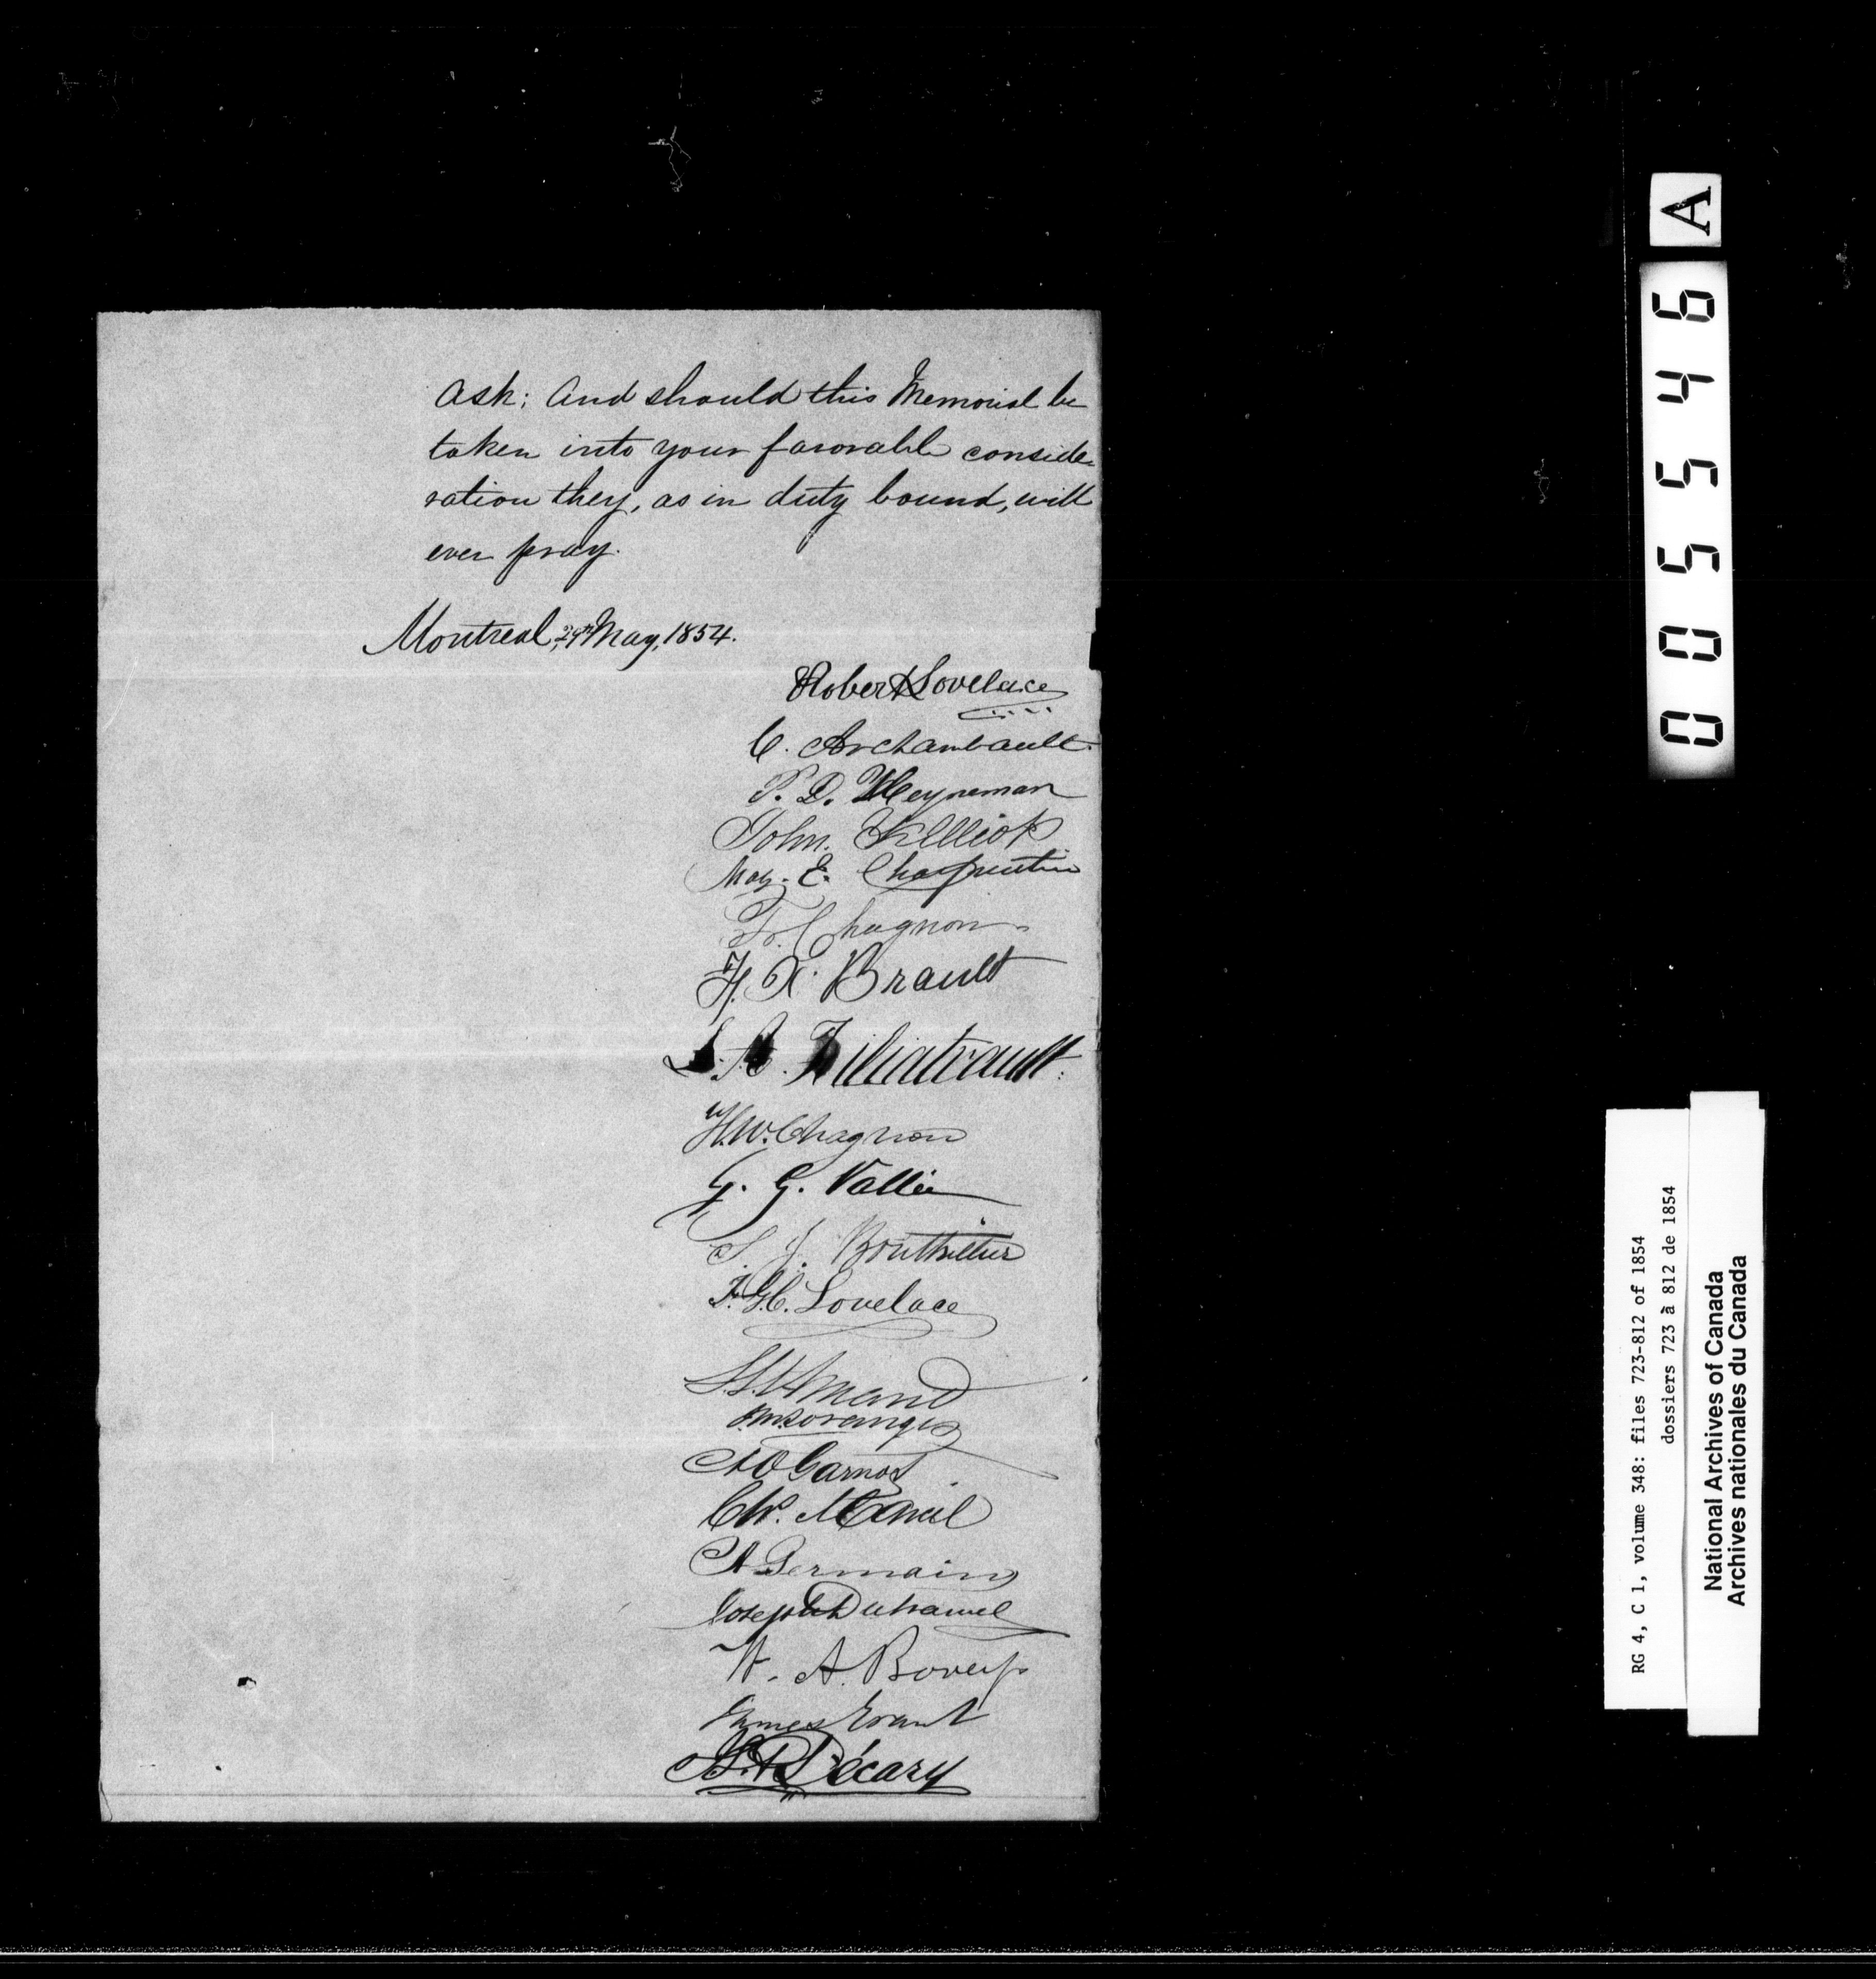 ask; And should this Memorial be
taken into your favorable conside-
ration they, as in duty bound, will
ever pray.
Montreal, 29th May, 1854.
Robert Lovelace
C. Archambault
P. D. Heyneman
John Elliot
E. Charpentier
F. Chagnon
F. X. Brault
Filiatrault
H. W. Chagnon
G. G. Vallée
S. J. Bouthillier
F. G. C. Lovelace
St Amand
Garnot
A Germain
Joseph Duhamel
W. A. Bovey
James Grant
Décary
A
005546
RG 4, C 1, volume 348: files 723-812 of 1854
dossiers 723 à 812 de 1854
National Archives of Canada
Archives nationales du Canada